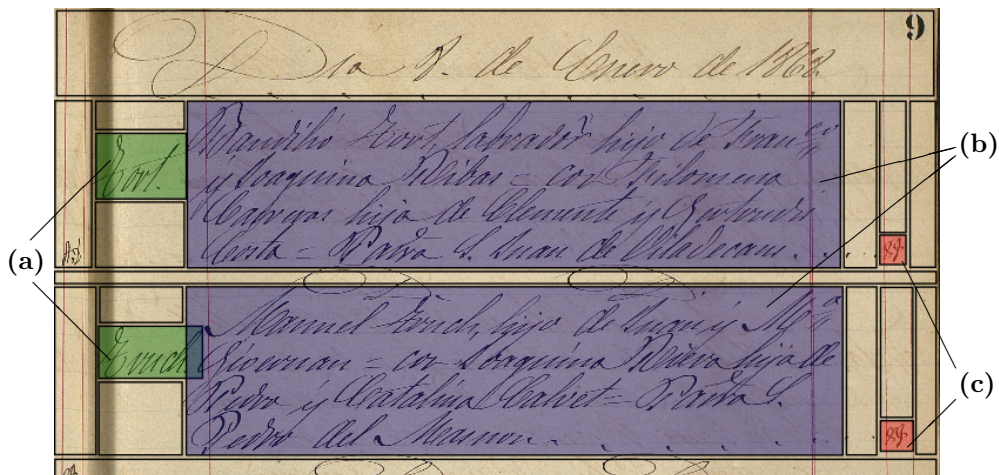 9
Dia 8. de Enero de 1868.
(a)
Fort.
Baudilió Fort, labrador hijo de Fran.co
y Joaquina Ribas = con Filomena
Calveras hija de Clemente y Gertrudis
Costa = Parra S. Juan de Viladecans.
(b)
Manuel Fonch, hijo de Juan y M.a
= con Joaquina Riera hija de
Pedro y Catalina Calvet = Parra S.
Pedro del Masnou.
(c)